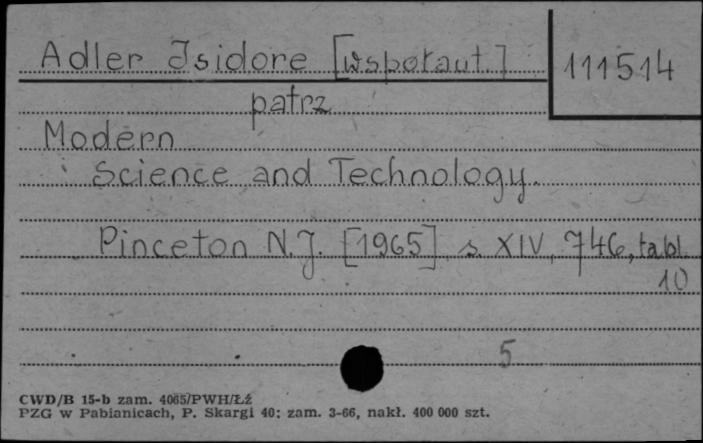 Adler Isidore [współaut.]
111514
patrz
Modern
Science and Technology.
Pinceton N.J. [1965] s. XIV, 746, tabl.
10
5
CWD/B 15-b zam. 4065/PWH/Łź
PZG w Pabianicach, P. Skargi 40; zam. 3-66, nakł. 400 000 szt.